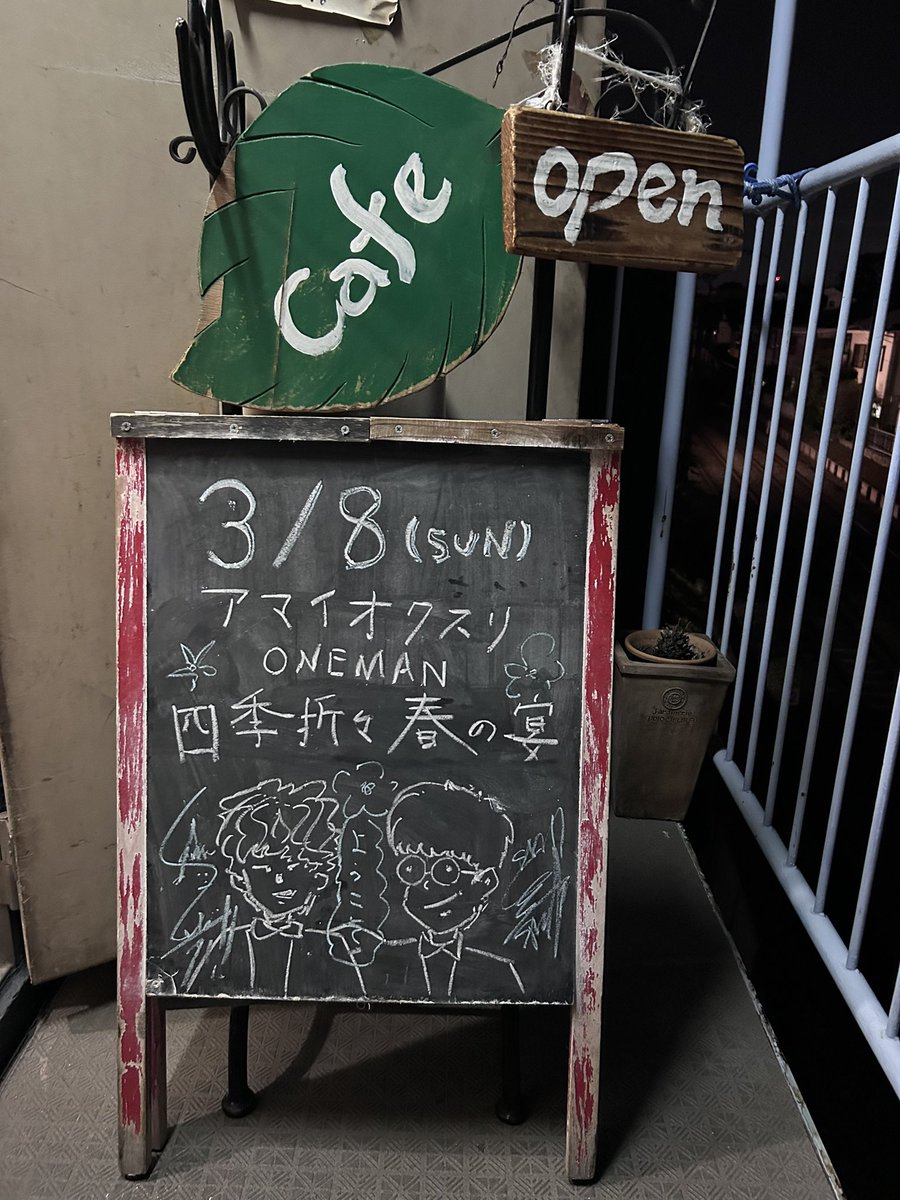 Cafe
open
3/8(SUN)
アマイオクスリ
ONEMAN
四季折々春の宴